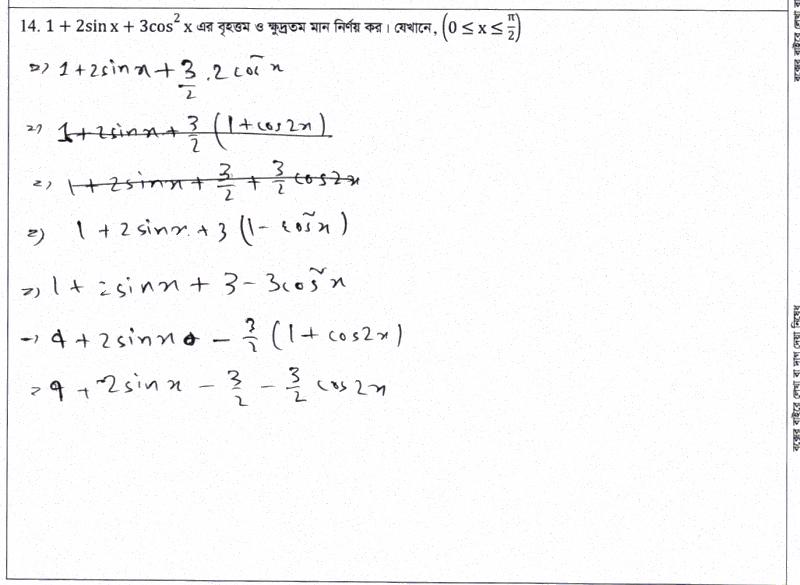 14. 1 + 2sin x + 3cos² x এর বৃহত্তম ও ক্ষুদ্রতম মান নির্ণয় কর। যেখানে, (0 ≤ x ≤ π/2)
=> 1 + 2sin x + 3/2 . 2 cos² x
=> 1 + 2sin x + 3/2 (1 + cos 2x)
=> 1 + 2sin x + 3/2 + 3/2 cos 2x
=> 1 + 2 sin x + 3 (1 - cos² x)
=> 1 + 2sin x + 3 - 3cos² x
=> 4 + 2sin x - 3/2 (1 + cos 2x)
=> 4 + 2sin x - 3/2 - 3/2 cos 2x